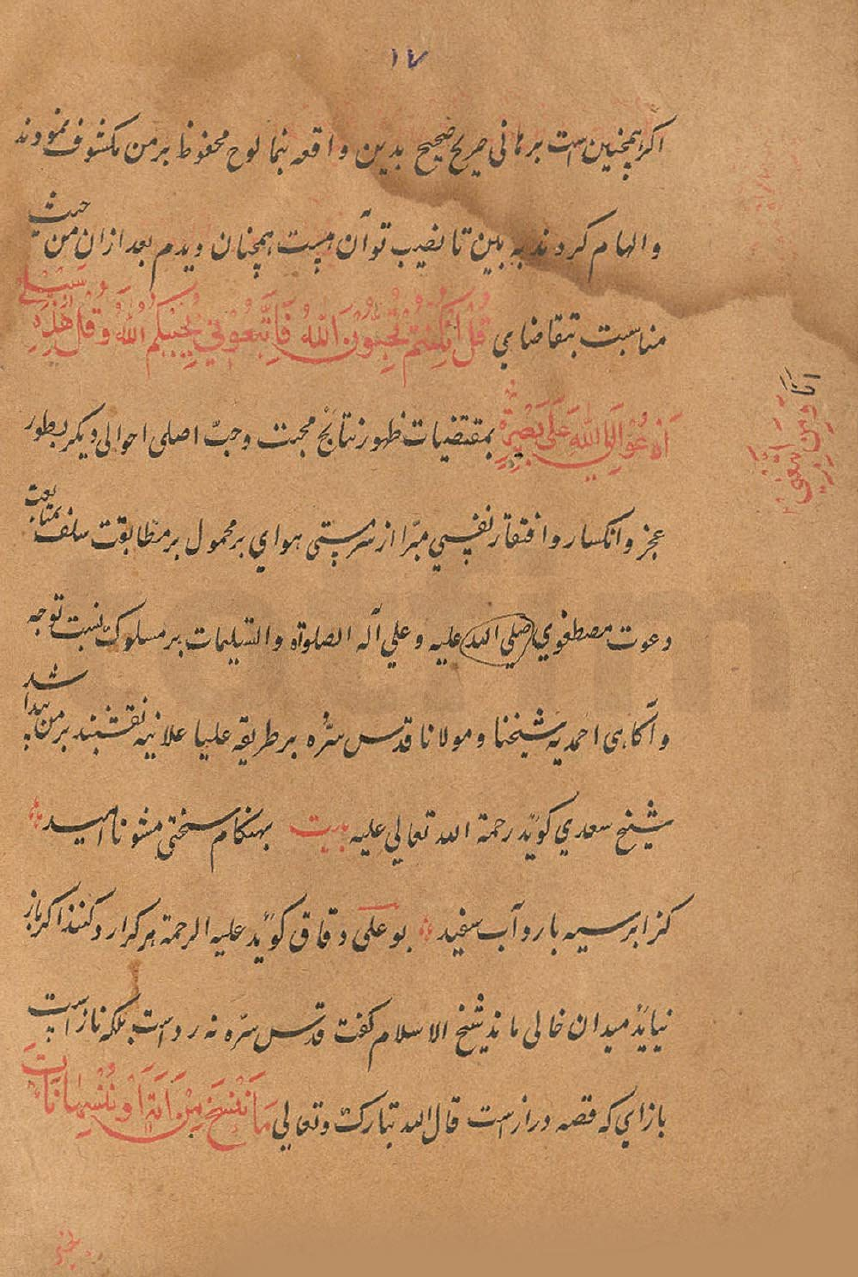 ۱۷
اکر همچنین است برهانی صریح صحیح بدین واقعه بنما لوح محفوظ بر من مکشوف نمودند
والهام کردند به بین تا نصیب تو آن هست همچنان دیدم بعد ازان من حیث
مناسبت بتقاضای قُل اِن کُنتُم تُحِبُّونَ اللّٰه فَاتَّبِعُونِی یُحبِبکُم اللّٰهُ وَ قُل هٰذِهٖ سَبِیلِی
اَدعُوا اِلَی اللّٰهِ عَلٰی بَصِیرَة بمقتضیات ظهور نتایج محبت وحبّ اصلی احوالی دیکر بطور
عجز وانکسار وافتقار نفسی مبرّا از سرمستی هوای بر محمول بر مطابقت سلف بمتابعت
دعوت مصطفوی صلی الله علیه وعلی آله الصلوة والتسلیمات بر مسلوک نسبت توجه
وآکاهی احمدیه شیخنا ومولانا قدس سرّه بر طریقه علیا علانیه نقشبند بر من پیدا شد
شیخ سعدی کوید رحمة الله تعالی علیه بیت بهنکام سختی مشو نا امید
کز ابر سیه بارد آب سفید بو علی دقاق کوید علیه الرحمة هر کرا رد کنند اکر باز
نیاید میدان خالی ماند شیخ الاسلام کفت قدس سرّه نه رد است بلکه ناز است
باز ای که قصه دراز است قال الله تبارک وتعالی مَا نَنسَخ مِن اٰیَةٍ اَو نُنسِهَا نَاتِ